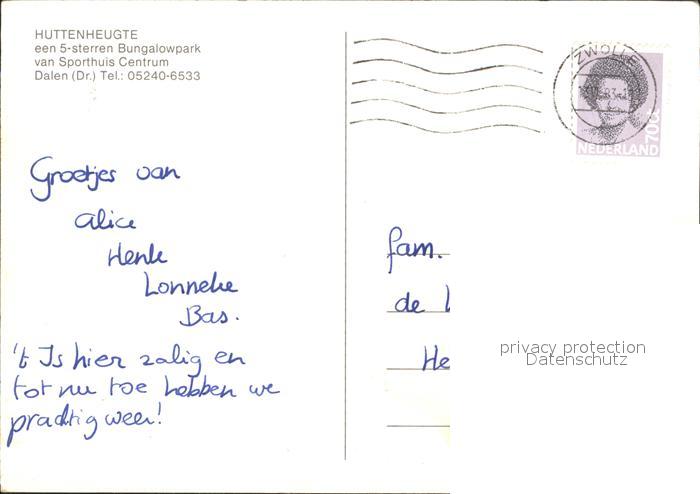 HUTTENHEUGTE
een 5-sterren Bungalowpark
van Sporthuis Centrum
Dalen (Dr.) Tel.: 05240-6533
ZWOLLE
70ct
NEDERLAND
Groetjes van
Alice
Henk
Lonneke
Bas.
't Is hier zalig en
tot nu toe hebben we
prachtig weer!
fam.
de
He
privacy protection
Datenschutz